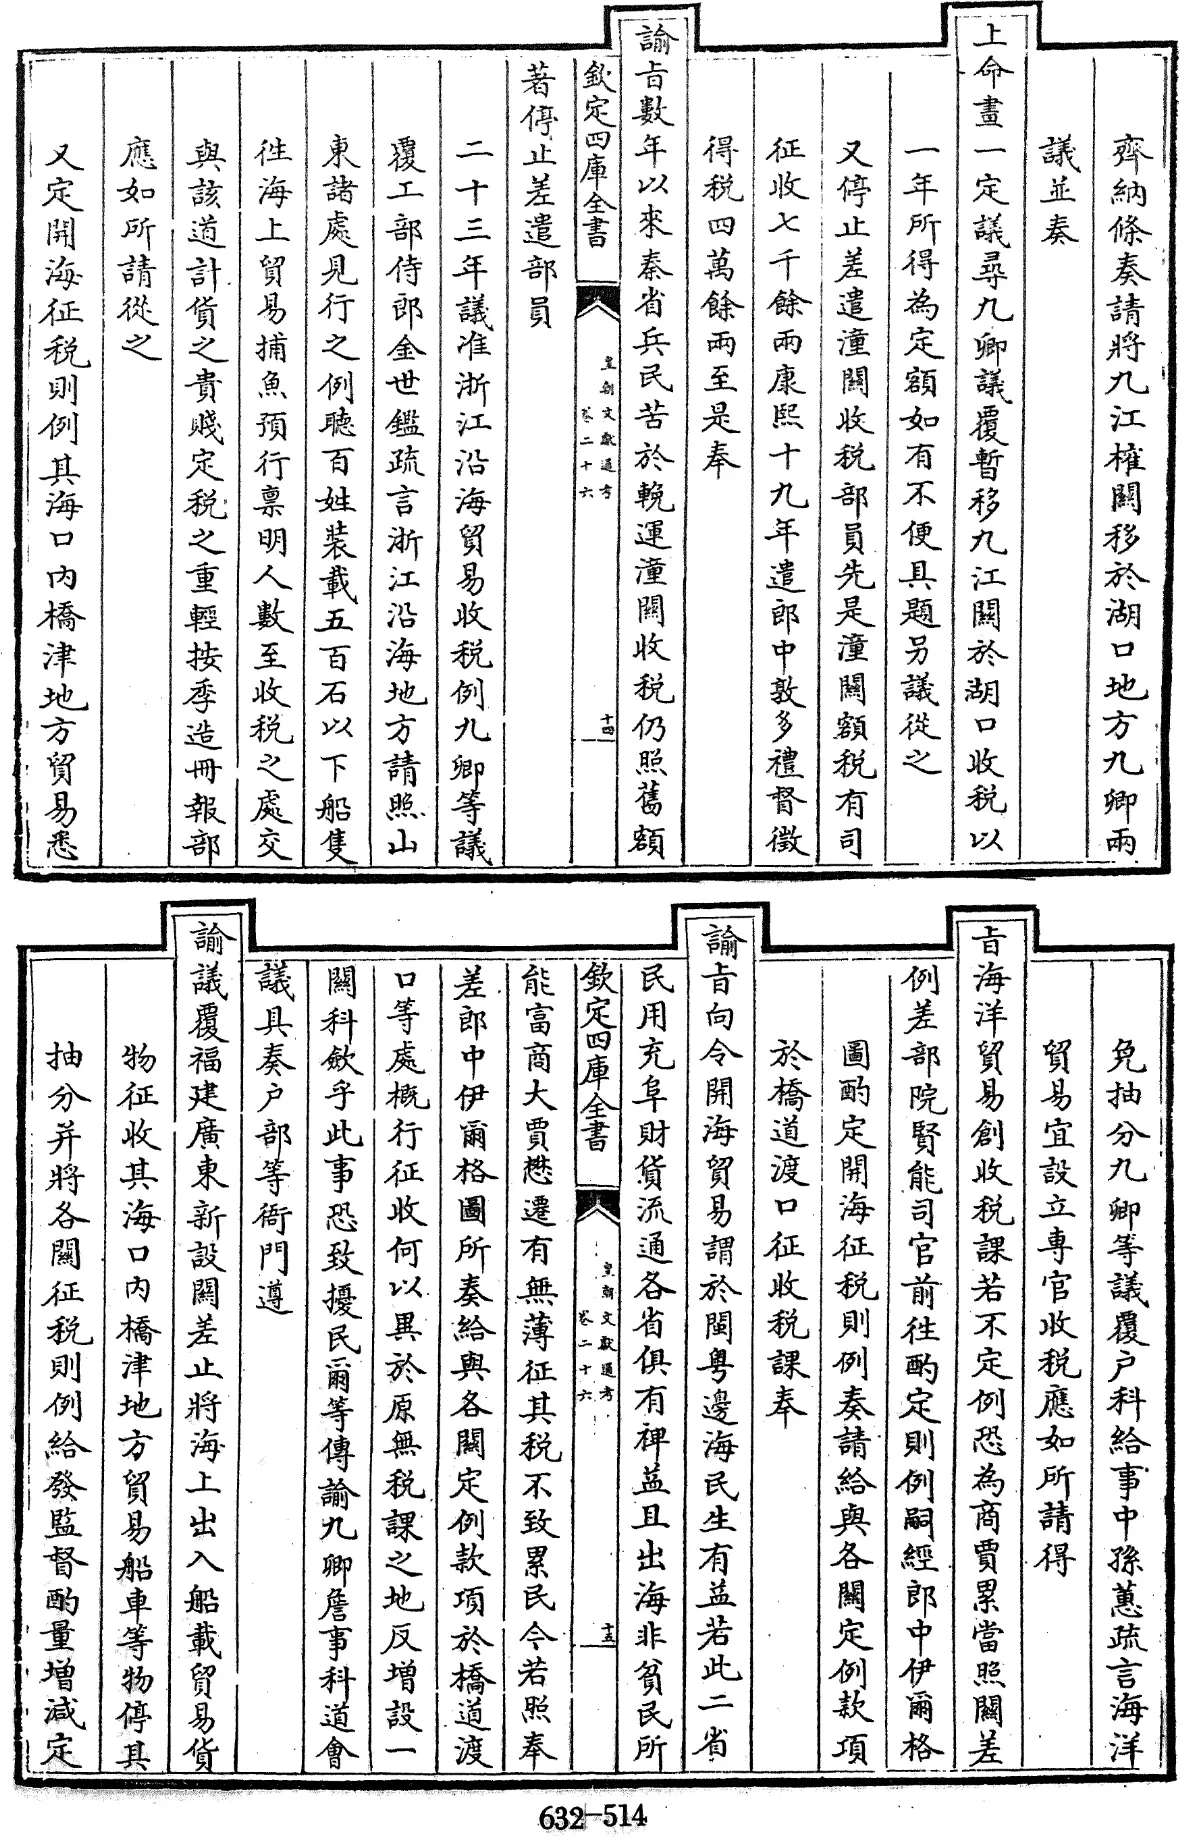 齊納條奏請將九江榷關移於湖口地方九卿兩
議並奏
上命畫一定議尋九卿議覆暫移九江關於湖口收稅以
一年所得為定額如有不便具題另議從之
又停止差遣潼關收稅部員先是潼關額稅有司
征收七千餘兩康熙十九年遣郎中敦多禮督徵
得稅四萬餘兩至是奉
諭旨數年以來秦省兵民苦於輓運潼關收稅仍照舊額
欽定四庫全書
皇朝文獻通考
卷二十六
十四
著停止差遣部員
二十三年議准浙江沿海貿易收稅例九卿等議
覆工部侍郎金世鑑疏言浙江沿海地方請照山
東諸處見行之例聽百姓裝載五百石以下船隻
徃海上貿易捕魚預行禀明人數至收稅之處交
與該道計貨之貴賤定稅之重輕按季造冊報部
應如所請從之
又定開海征稅則例其海口內橋津地方貿易悉
免抽分九卿等議覆戶科給事中孫蕙疏言海洋
貿易宜設立專官收稅應如所請得
旨海洋貿易創收稅課若不定例恐為商賈累當照關差
例差部院賢能司官前徃酌定則例嗣經郎中伊爾格
圖酌定開海征稅則例奏請給與各關定例款項
於橋道渡口征收稅課奉
諭旨向令開海貿易謂於閩粤邊海民生有益若此二省
民用充阜財貨流通各省俱有裨益且出海非貧民所
欽定四庫全書
皇朝文獻通考
卷二十六
十五
能富商大賈懋遷有無薄征其稅不致累民今若照奉
差郎中伊爾格圖所奏給與各關定例款項於橋道渡
口等處概行征收何以異於原無稅課之地反增設一
關科歛乎此事恐致擾民爾等傳諭九卿詹事科道會
議具奏戶部等衙門遵
諭議覆福建廣東新設關差止將海上出入船載貿易貨
物征收其海口內橋津地方貿易船車等物停其
抽分并將各關征稅則例給發監督酌量增減定
632-514